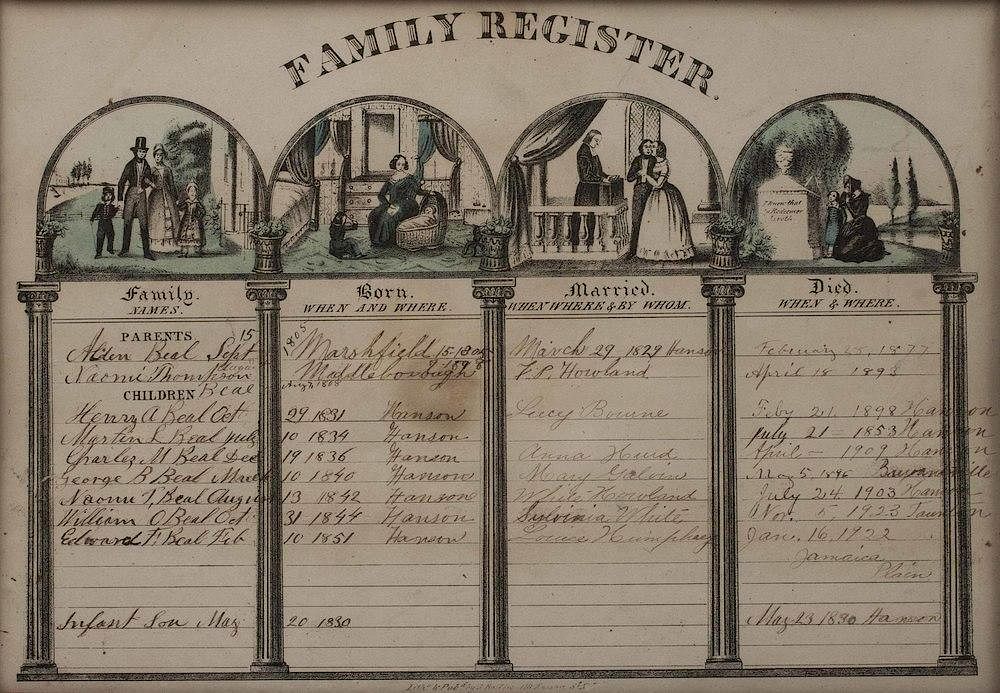 FAMILY REGISTER.
I know that
my Redeemer
liveth
Family.
NAMES.
Born.
WHEN AND WHERE.
Married.
WHEN WHERE & BY WHOM.
Died.
WHEN & WHERE.
PARENTS 15
1805
Alden Beal Sept Marshfield 15 March 29 1829 Hanson February 1877
Naomi Thompson Middleborough F. P. Howland April 18 1893
Beal Aug 1808
CHILDREN
Henry A Beal Oct 29 1831 Hanson Lucy Bourne Feby 21 1898 Hanson
Martin L Beal July 10 1834 Hanson July 21 1853 Hanson
Charles M Beal Dec 19 1836 Hanson Anna Hurd April - 1907 Hanson
George B Beal March 10 1840 Hanson Mary May 5 1896
Naomi T, Beal August 13 1842 Hanson Howland July 24 1903 Hanson
William O Beal Oct 31 1844 Hanson Sylvinia White Nov. 5, 1923 Taunton
Edward F. Beal Feb 10 1851 Hanson Louise Humphrey Jan. 16, 1922
Jamaica
Plain
Infant Son May 20 1830 May 23 1830 Hanson